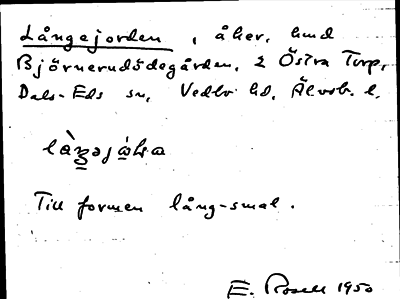 Långejorden, åker, hmd
Björnerudsödegården, 2 Östra Torp,
Dals-Eds sn, Vedbo hd, Älvsb. l.
Till formen lång-smal.
E. Rosell 1950